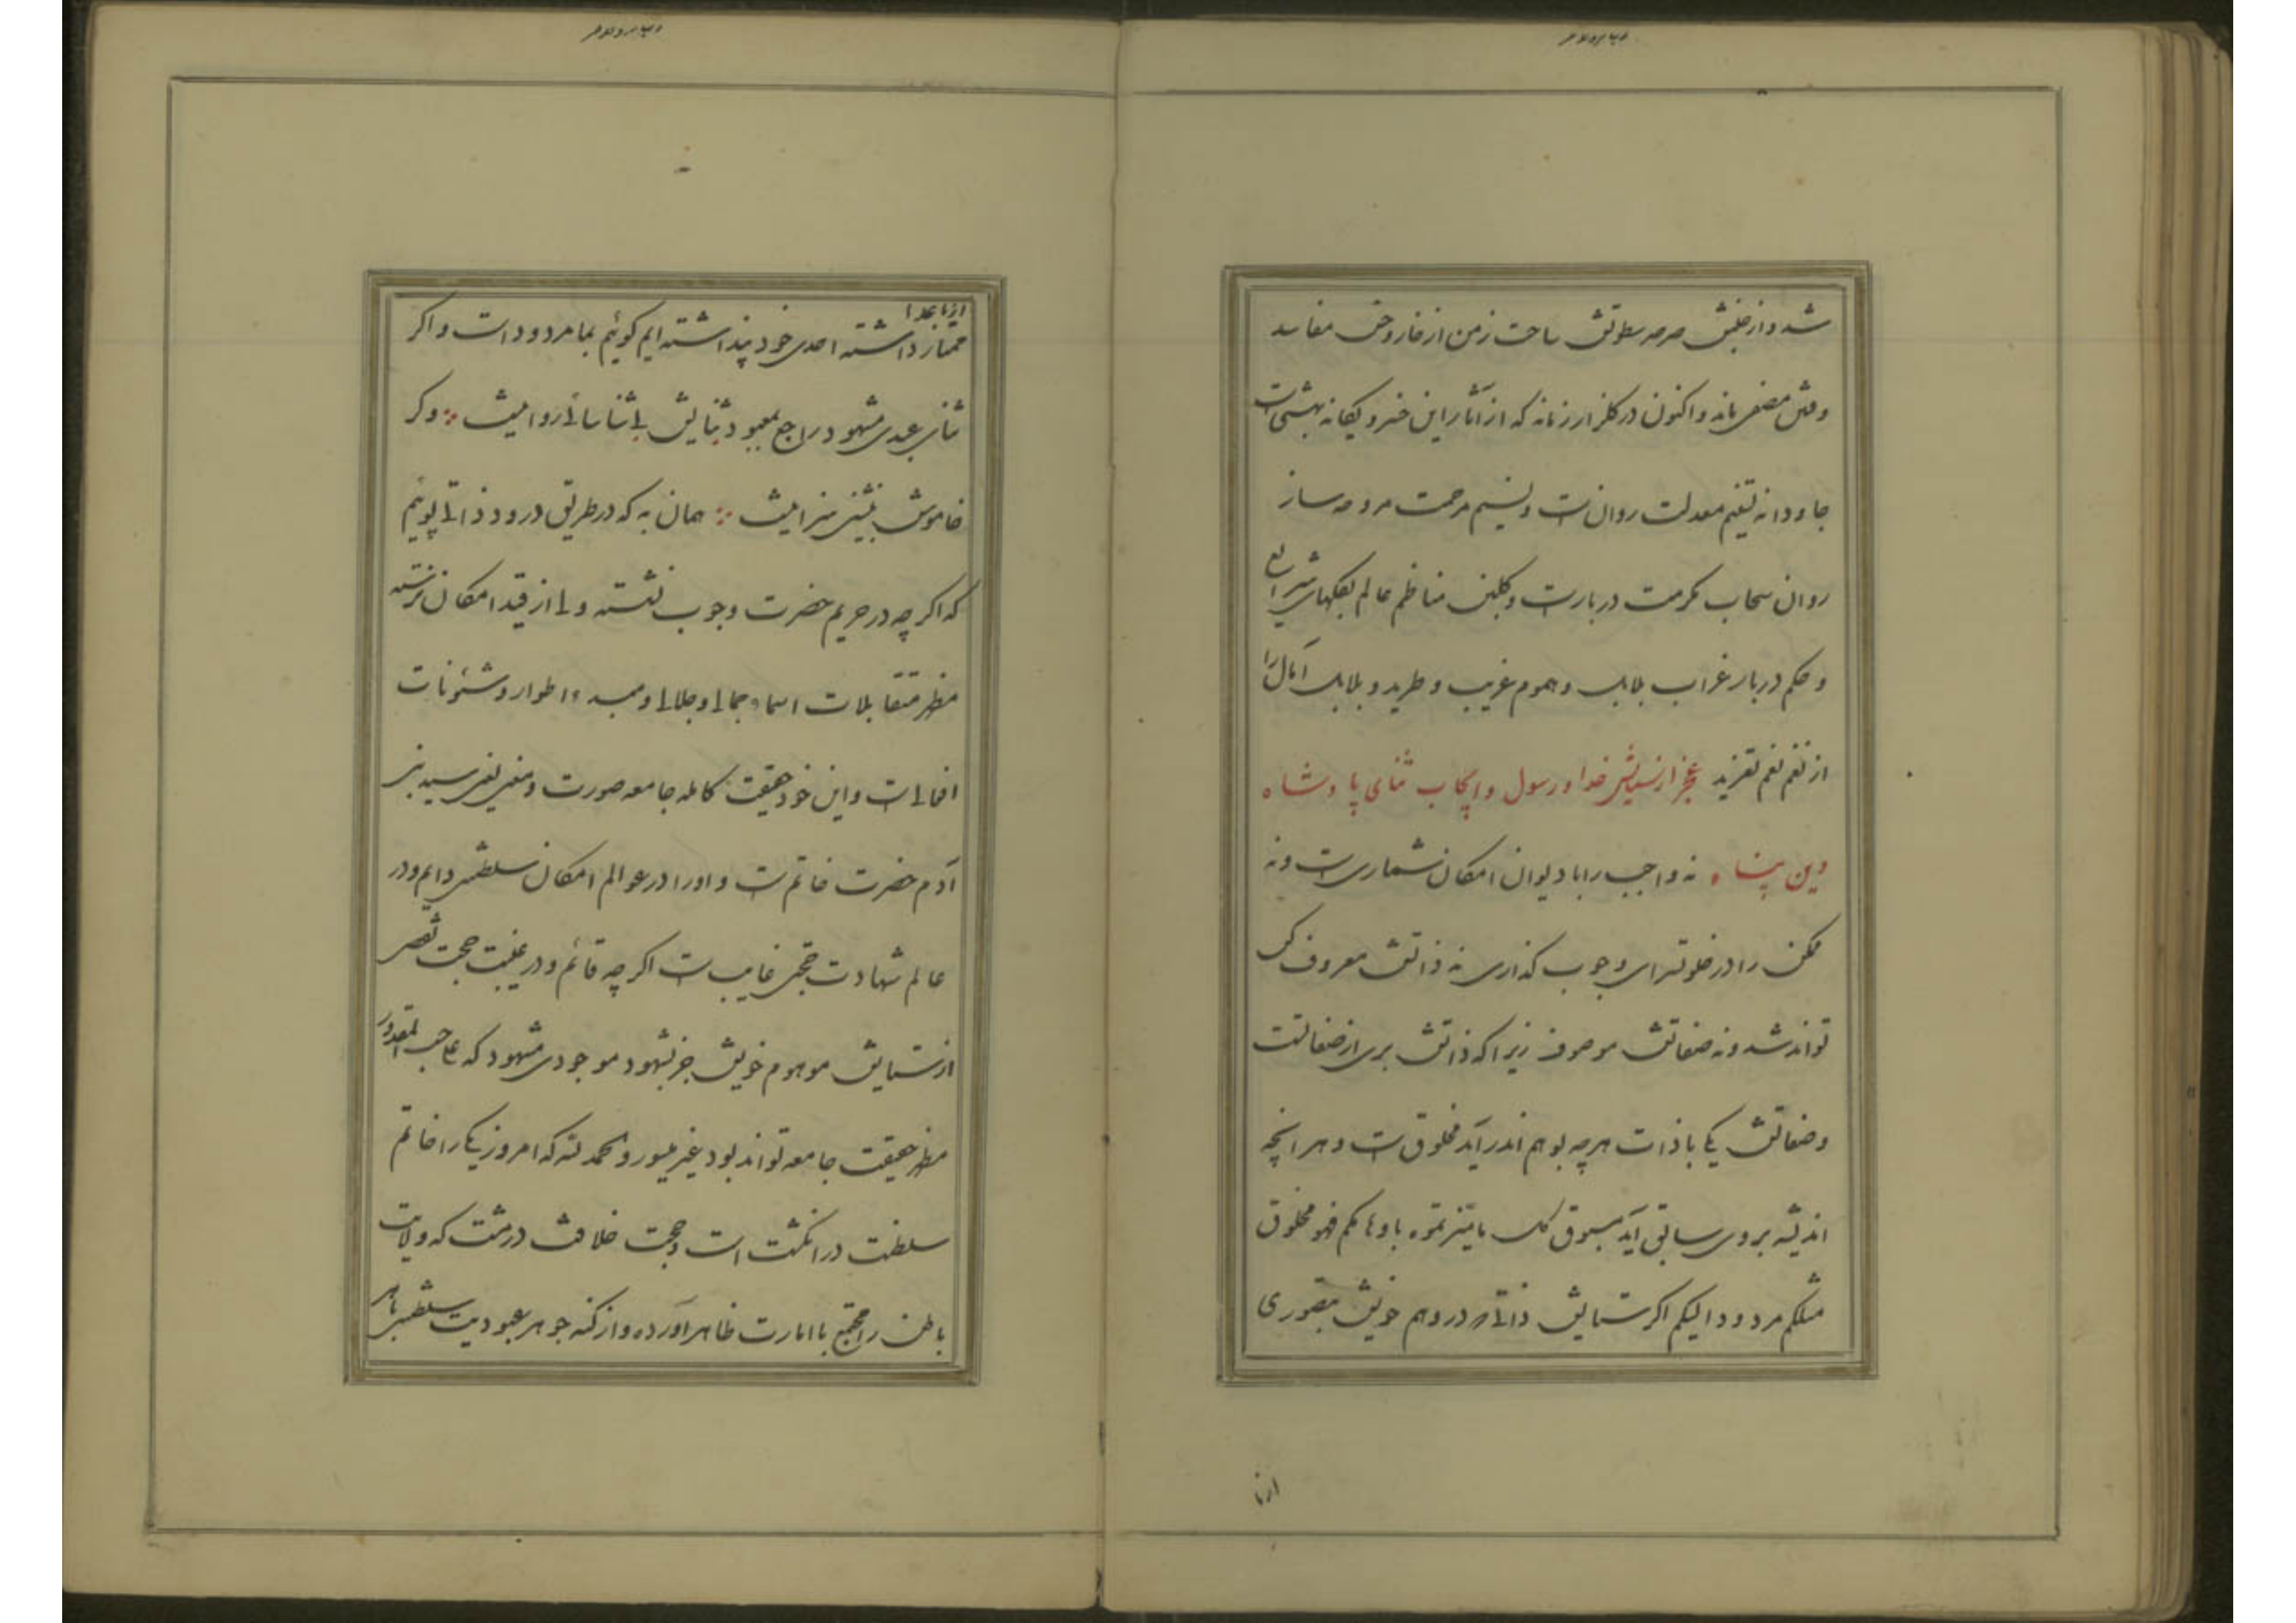 شد و از جنبش صرصر سطوتش ساحت زمن از خار و خس مفاسد
و فتن مصفی ماند و اکنون در گلزار زمانه که از آثار این خسرو یگانه بهشتی است
جاودانه تسنیم معدلت روانست و نسیم مرحمت مروحه ساز
روان سحاب مکرمت دربارست و گلبن مناظم عالم بگلهای شرایع
و حکم دربار غراب بلابل و هموم غریب و طرید و بلابل آمال را
از نغم نعم تغرید عجز از ستایش خدا و رسول و ایجاب ثنای پادشاه
دین پناه نه واجب را با دیوان امکان شماری است و نه
ممکن را در خلوتسرای وجوب گذاری نه ذاتش معروف کس
تواند شد و نه صفاتش موصوف زیرا که ذاتش بری از صفاتست
و صفاتش یکی با ذات هر چه بوهم اندر آید مخلوقست و هر آنچه
اندیشه بروی سابق آید مسبوق کل ما میزتموه باوهامکم فهو مخلوق
مثلکم مردود الیکم اگر ستایش ذاتی در وهم خویش بتصوری
از ما
از ما عدا
ممتاز داشته احدی خود پنداشته ایم گوئیم بما مردود است و اگر
ثنای عبدی مشهود راجع بمعبود ثنایش بی شناسائی روا نیست وگر
خاموش بنشینی سزا نیست همان به که در طریق درود ذاتی پوئیم
که اگر چه در حریم حضرت وجوب ننشسته ولی از قید امکان نرسته
مظهر متقابلات اسماء جمالی و جلالی و مبدء اطوار و شئونات
افعالی است و این خود حقیقت کامله جامعه صورت و معنی یعنی سید بنی
آدم حضرت خاتم است و او را در عوالم امکان سلطنتی دایم و در
عالم شهادت حجتی غایب است اگر چه قائم و در غیبت حجت تقصی
از ستایش موهوم خویش جز بشهود موجودی مشهود که علی حسب المقدور
مظهر حقیقت جامعه تواند بود غیر میسور و الحمد لله که امروز یکی را خاتم
سلطنت در انگشت است و حجت خلافت در مشت که ولایت
باطن را مجتمع با امارت ظاهر آورده و از کنه جوهر عبودیت سلطنتی باهر